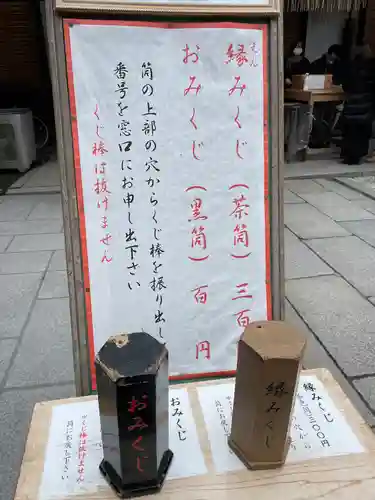 えん
縁みくじ(茶筒)三百
おみくじ(黒筒)百円
筒の上部の穴からくじ棒を振り出し
番号を窓口にお申し出下さい
くじ棒は抜けません
縁みくじ
300円
縁みくじ
おみくじ
おみくじ